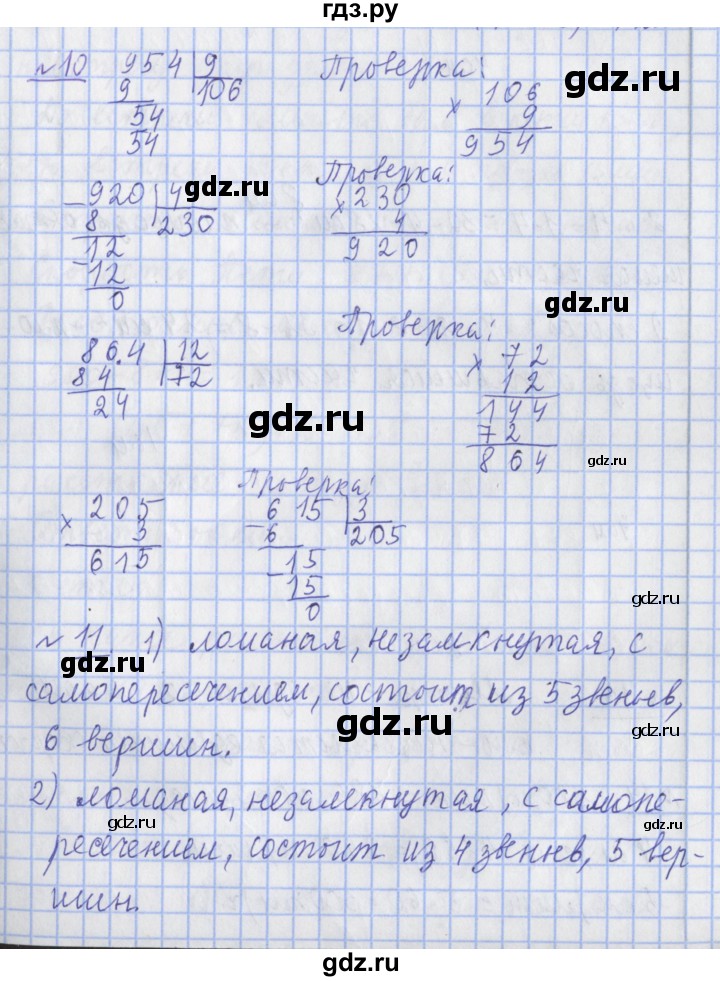 гдз.ру
№10 954 | 9 Проверка:
9 106 × 106
54 9
54 954
Проверка:
− 920 | 4 × 230
8 230 4
− 12 920
12
0
Проверка:
86.4 | 12 × 72
84 72 12
24 144
72
864
Проверка:
× 205 − 6 15 | 3
3 6 205
615 − 15
15
0
№ 11 1) ломаная, незамкнутая, с
самопересечением, состоит из 5 звеньев,
6 вершин.
2) ломаная, незамкнутая, с самопе-
ресечением, состоит из 4 звеньев, 5 вер-
шин.
gdz.ru
gdz.ru
gdz.ru
gdz.ru
gdz.ru
gdz.ru
gdz.ru
gdz.ru
gdz.ru
gdz.ru
gdz.ru